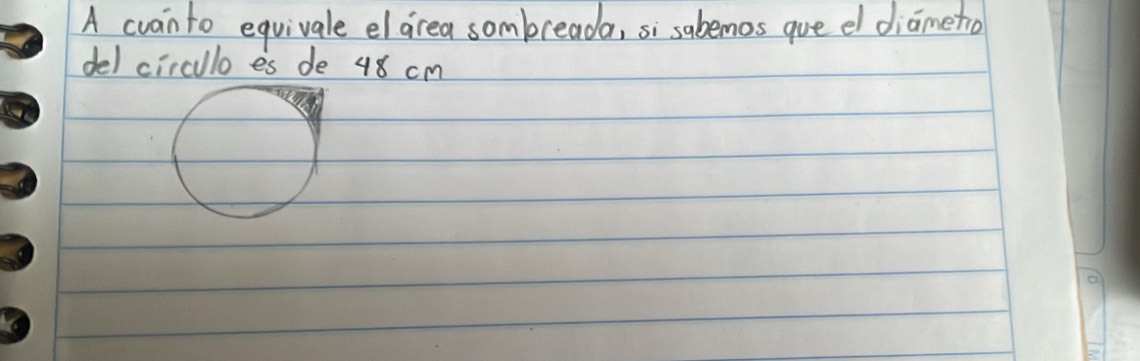 A cuánto equivale el área sombreada, si sabemos que el diámetro
del círculo es de 48 cm